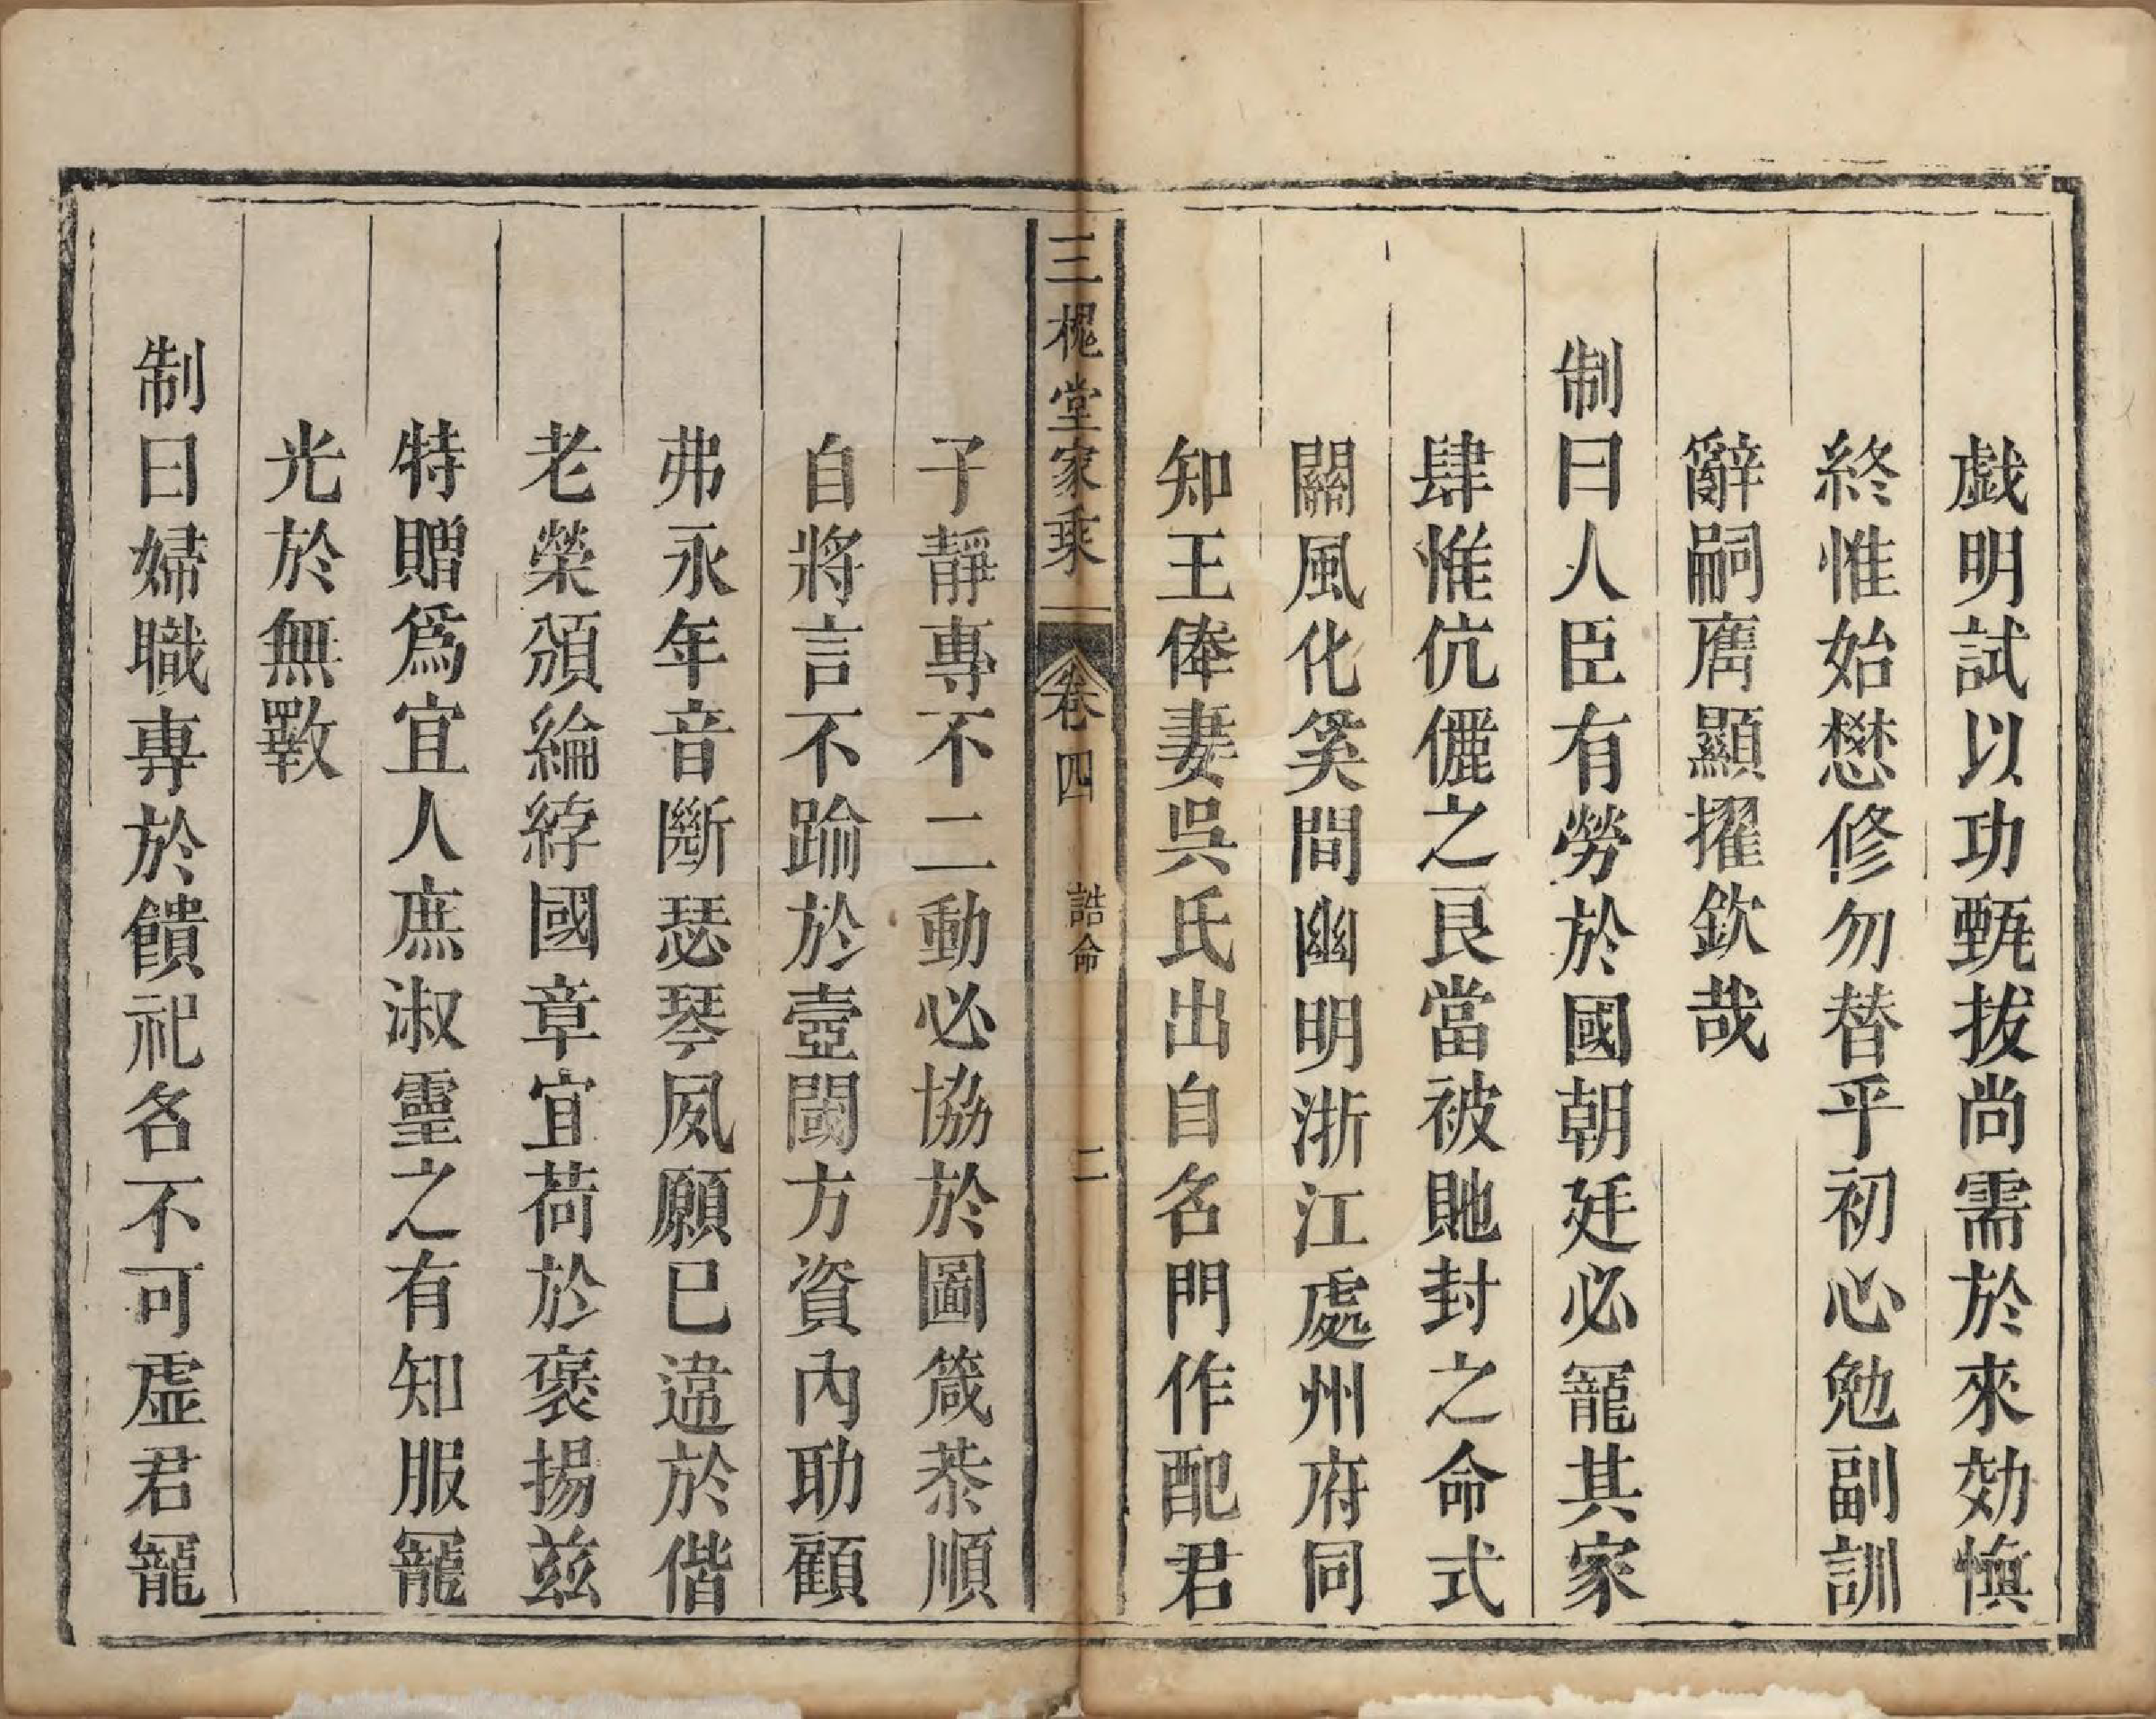 戯明試以功甄拔尚需於來効愼
終惟始懋修勿替乎初心勉副訓
辭嗣膺顯擢欽哉
制曰人臣有勞於國朝廷必寵其家
肆惟伉儷之良當被貤封之命式
關風化奚間幽明浙江處州府同
知王俸妻吳氏出自名門作配君
三槐堂家乘
卷四
誥命
二
子靜專不二動必協於圖箴恭順
自將言不踰於壼閾方資內助顧
弗永年音斷瑟琴夙願已違於偕
老榮頒綸綍國章宜荷於褒揚茲
特贈爲宜人庶淑靈之有知服寵
光於無斁
制曰婦職專於饋祀名不可虛君寵